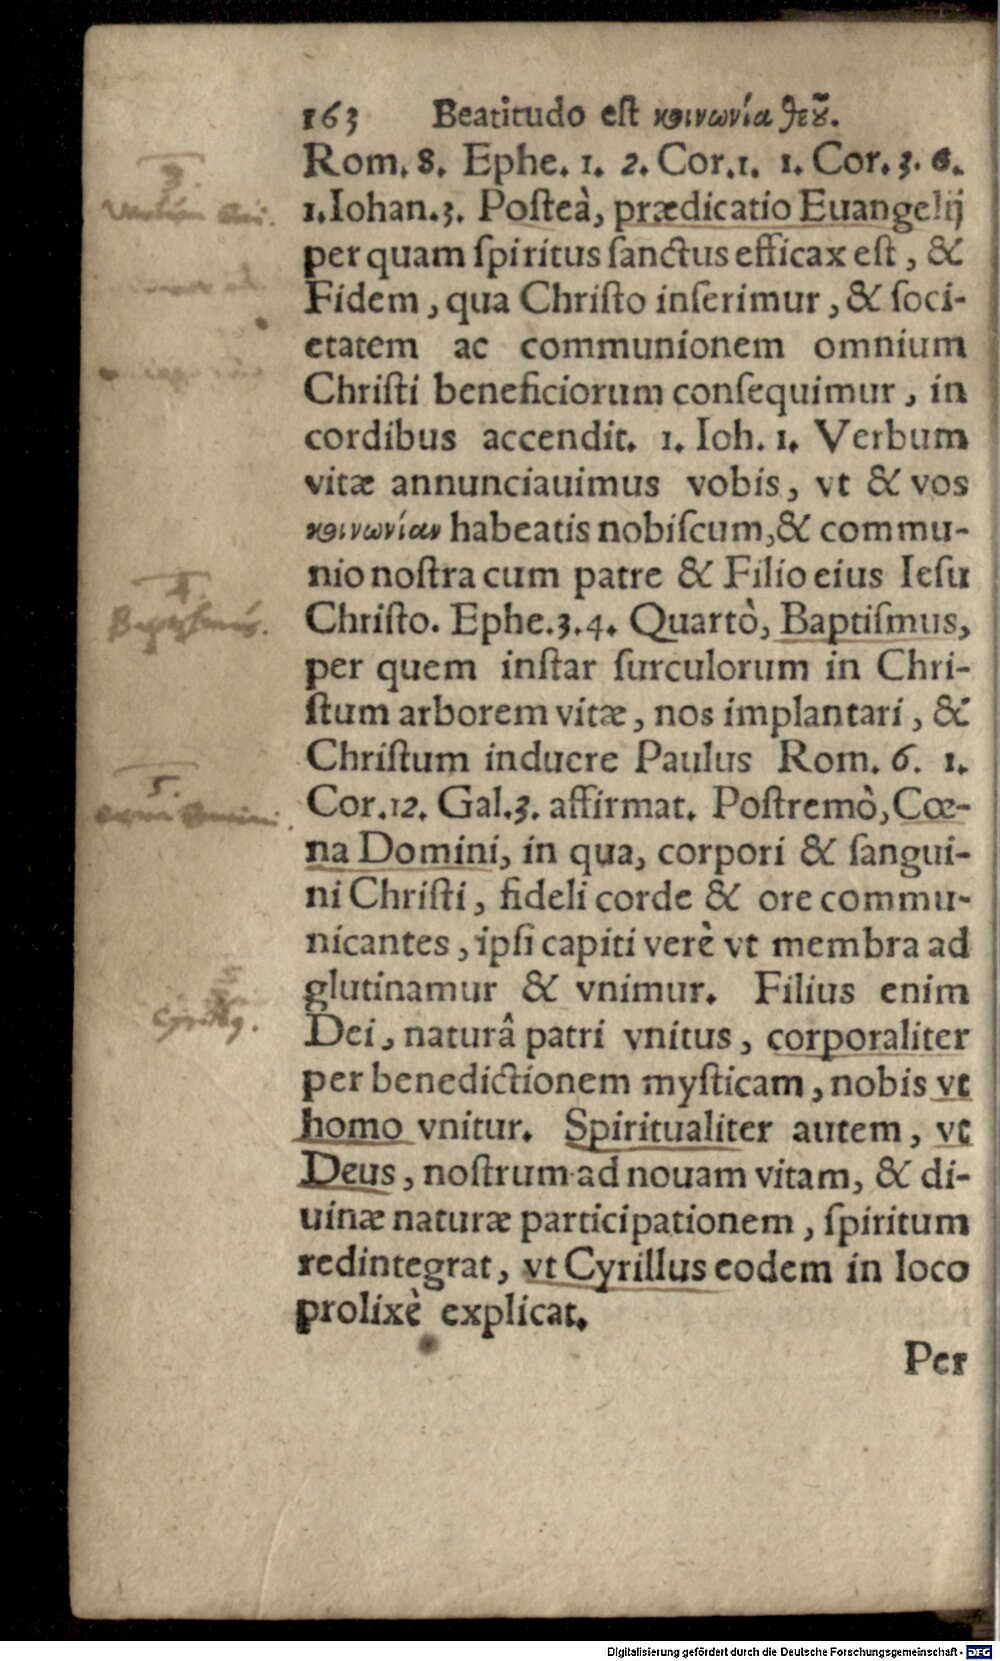 163 Beatitudo eſt κοινωνία θεȣ͂.
Rom. 8. Ephe. 1. 2. Cor.1. 1. Cor. 3. 6.
1. Iohan.3. Poſteà, prædicatio Euangelij
per quam ſpiritus ſanctus efficax eſt, &
Fidem, qua Chriſto inſerimur, & ſoci-
etatem ac communionem omnium
Chriſti beneficiorum conſequimur, in
cordibus accendit. 1. Ioh. 1. Verbum
vitæ annunciauimus vobis, vt & vos
κοινωνίαν habeatis nobiſcum, & commu-
nio noſtra cum patre & Filio eius Ieſu
Chriſto. Ephe.3.4. Quartò, Baptiſmus,
per quem inſtar ſurculorum in Chri-
ſtum arborem vitæ, nos implantari, &
Chriſtum induere Paulus Rom. 6. 1.
Cor.12. Gal.3. affirmat. Poſtremò, Cœ-
na Domini, in qua, corpori & ſangui-
ni Chriſti, fideli corde & ore commu-
nicantes, ipſi capiti verè vt membra ad
glutinamur & vnimur. Filius enim
Dei, naturâ patri vnitus, corporaliter
per benedictionem myſticam, nobis vt
homo vnitur. Spiritualiter autem, vt
Deus, noſtrum ad nouam vitam, & di-
uinæ naturæ participationem, ſpiritum
redintegrat, vt Cyrillus eodem in loco
prolixè explicat.
Per
3.
4.
Baptismus.
5.
Digitalisierung gefördert durch die Deutsche Forschungsgemeinschaft - DFG